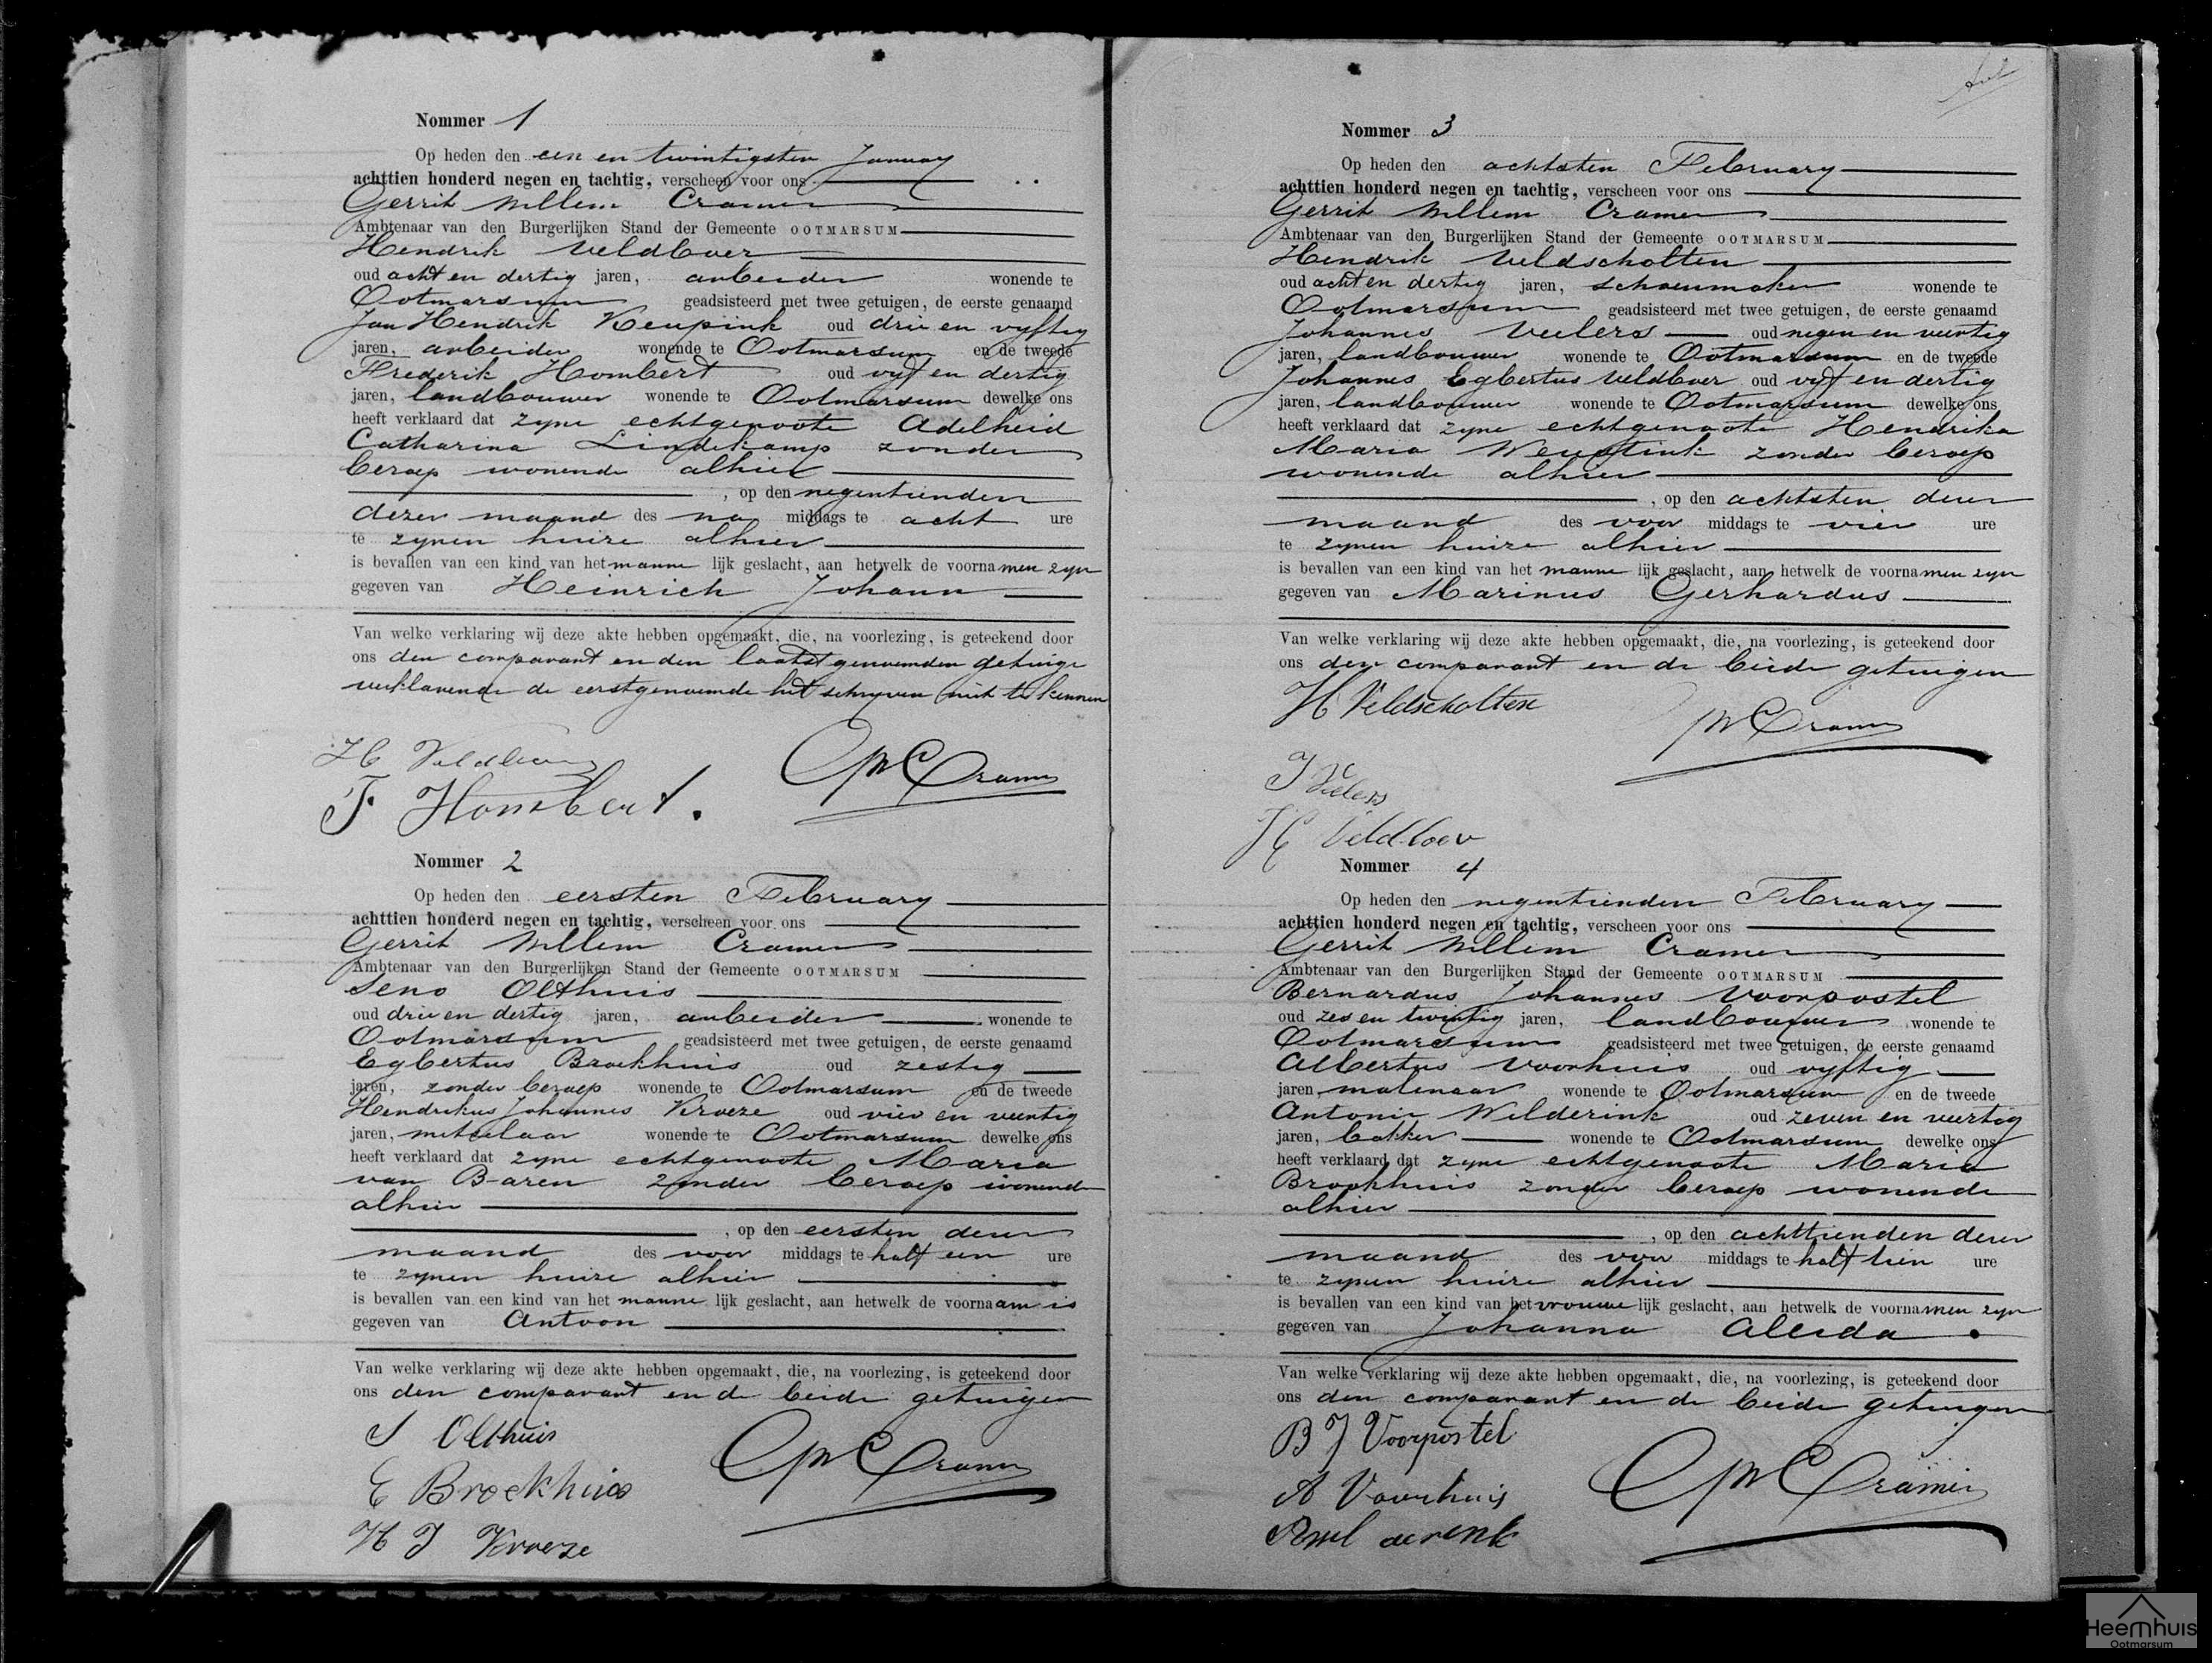 Nommer 1
Op heden den een en twintigsten January
achttien honderd negen en tachtig, verscheen voor ons
Gerrit Willem Cramer
Ambtenaar van den Burgerlijken Stand der Gemeente OOTMARSUM
Hendrik Veldboer
oud acht en dertig jaren, arbeider wonende te
Ootmarsum geadsisteerd met twee getuigen, de eerste genaamd
Jan Hendrik Keupink oud drie en vyftig
jaren, arbeider wonende te Ootmarsum en de tweede
Frederik Hombert oud vyf en dertig
jaren, landbouwer wonende te Ootmarsum dewelke ons
heeft verklaard dat zyne echtgenoote Adelheid
Catharina Lindekamp zonder
beroep wonende alhier
, op den negentienden
dezer maand des na middags te acht ure
te zynen huize alhier
is bevallen van een kind van het manne lijk geslacht, aan hetwelk de voornamen zyn
gegeven van Heinrich Johann
Van welke verklaring wij deze akte hebben opgemaakt, die, na voorlezing, is geteekend door
ons den comparant en den laatstgenoemden getuige
verklarende de eerstgenoemde het schryven niet te kennen
H Veldboer
GW Cramer
F Hombert.
Nommer 2
Op heden den eersten February
achttien honderd negen en tachtig, verscheen voor ons
Gerrit Willem Cramer
Ambtenaar van den Burgerlijken Stand der Gemeente OOTMARSUM
Seno Olthuis
oud drie en dertig jaren, arbeider wonende te
Ootmarsum geadsisteerd met twee getuigen, de eerste genaamd
Egbertus Broekhuis oud zestig
jaren, zonder beroep wonende te Ootmarsum en de tweede
Hendrikus Johannes Kroeze oud vier en veertig
jaren, metselaar wonende te Ootmarsum dewelke ons
heeft verklaard dat zyne echtgenoote Maria
van Baren zonder beroep wonende
alhier
, op den eersten dezer
maand des voor middags te half een ure
te zynen huize alhier
is bevallen van een kind van het manne lijk geslacht, aan hetwelk de voornaam is
gegeven van Antoon
Van welke verklaring wij deze akte hebben opgemaakt, die, na voorlezing, is geteekend door
ons den comparant en de beide getuigen
S Olthuis
GW Cramer
E Broekhuis
H J Kroeze
Nommer 3
Op heden den achtsten February
achttien honderd negen en tachtig, verscheen voor ons
Gerrit Willem Cramer
Ambtenaar van den Burgerlijken Stand der Gemeente OOTMARSUM
Hendrik Veldscholten
oud acht en dertig jaren, schoenmaker wonende te
Ootmarsum geadsisteerd met twee getuigen, de eerste genaamd
Johannes Veelers oud negen en veertig
jaren, landbouwer wonende te Ootmarsum en de tweede
Johannes Egbertus Veldboer oud vyf en dertig
jaren, landbouwer wonende te Ootmarsum dewelke ons
heeft verklaard dat zyne echtgenoote Hendrika
Maria zonder beroep
wonende alhier
, op den achtsten dezer
maand des voor middags te vier ure
te zynen huize alhier
is bevallen van een kind van het manne lijk geslacht, aan hetwelk de voornamen zyn
gegeven van Marinus Gerhardus
Van welke verklaring wij deze akte hebben opgemaakt, die, na voorlezing, is geteekend door
ons den comparant en de beide getuigen
H Veldscholten
GW Cramer
J Veelers
Veldboer
Nommer 4
Op heden den negentienden February
achttien honderd negen en tachtig, verscheen voor ons
Gerrit Willem Cramer
Ambtenaar van den Burgerlijken Stand der Gemeente OOTMARSUM
Bernardus Johannes Voorpostel
oud zes en twintig jaren, landbouwer wonende te
Ootmarsum geadsisteerd met twee getuigen, de eerste genaamd
Albertus Voorhuis oud vyftig
jaren, molenaar wonende te Ootmarsum en de tweede
Antonie Wilderink oud zeven en veertig
jaren, bakker wonende te Ootmarsum dewelke ons
heeft verklaard dat zyne echtgenoote Maria
Broekhuis zonder beroep wonende
alhier
, op den achttienden dezer
maand des voor middags te half tien ure
te zynen huize alhier
is bevallen van een kind van het vrouwe lijk geslacht, aan hetwelk de voornamen zyn
gegeven van Johanna Aleida
Van welke verklaring wij deze akte hebben opgemaakt, die, na voorlezing, is geteekend door
ons den comparant en de beide getuigen
B J Voorpostel
GW Cramer
A Voorhuis
Heemhuis
Ootmarsum